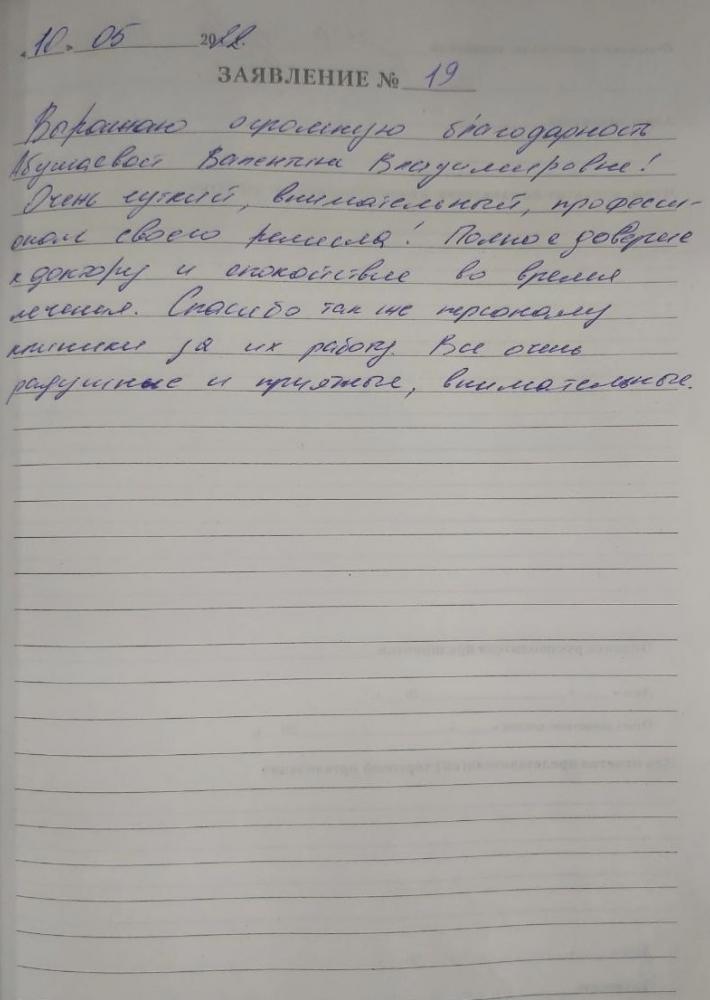 « 10 » 05 2022.
ЗАЯВЛЕНИЕ № 19
Выражаю огромную благодарность
Абушаевой Валентине Владимировне!
Очень чуткий, внимательный, професси-
онал своего ремесла! Полное доверие
к доктору и спокойствие во время
лечения. Спасибо так же персоналу
клиники за их работу. Все очень
радушные и приятные, внимательные.